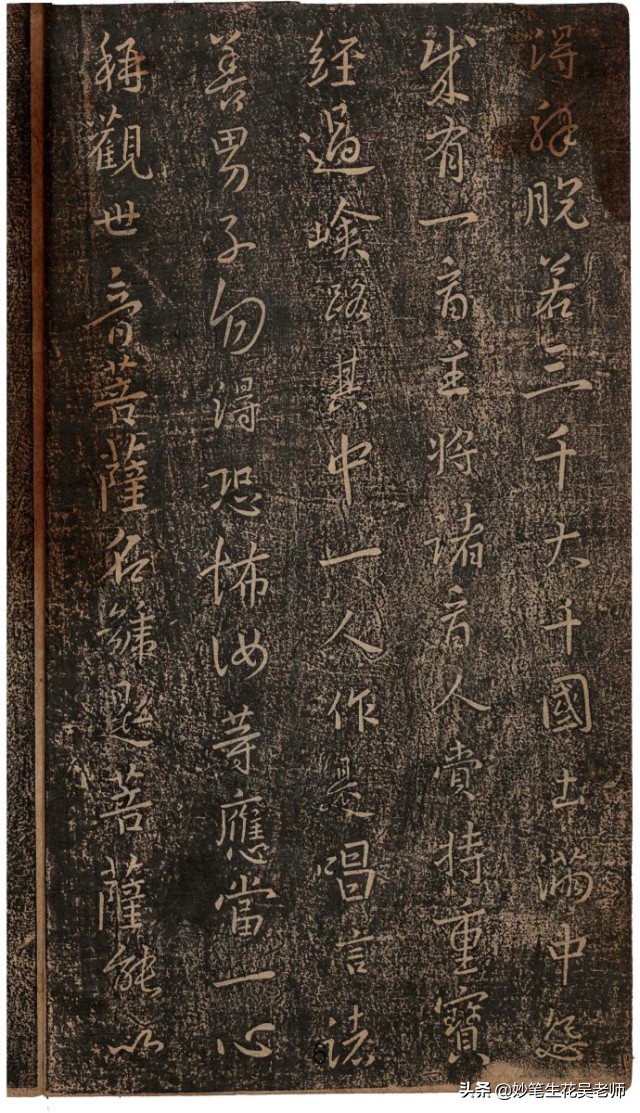 得解脫若三千大千國土滿中怨
賊有一商主將諸商人賫持重寶
經過嶮路其中一人作是唱言諸
善男子勿得恐怖汝等應當一心
稱觀世音菩薩名號是菩薩能以
头条 @妙笔生花吴老师